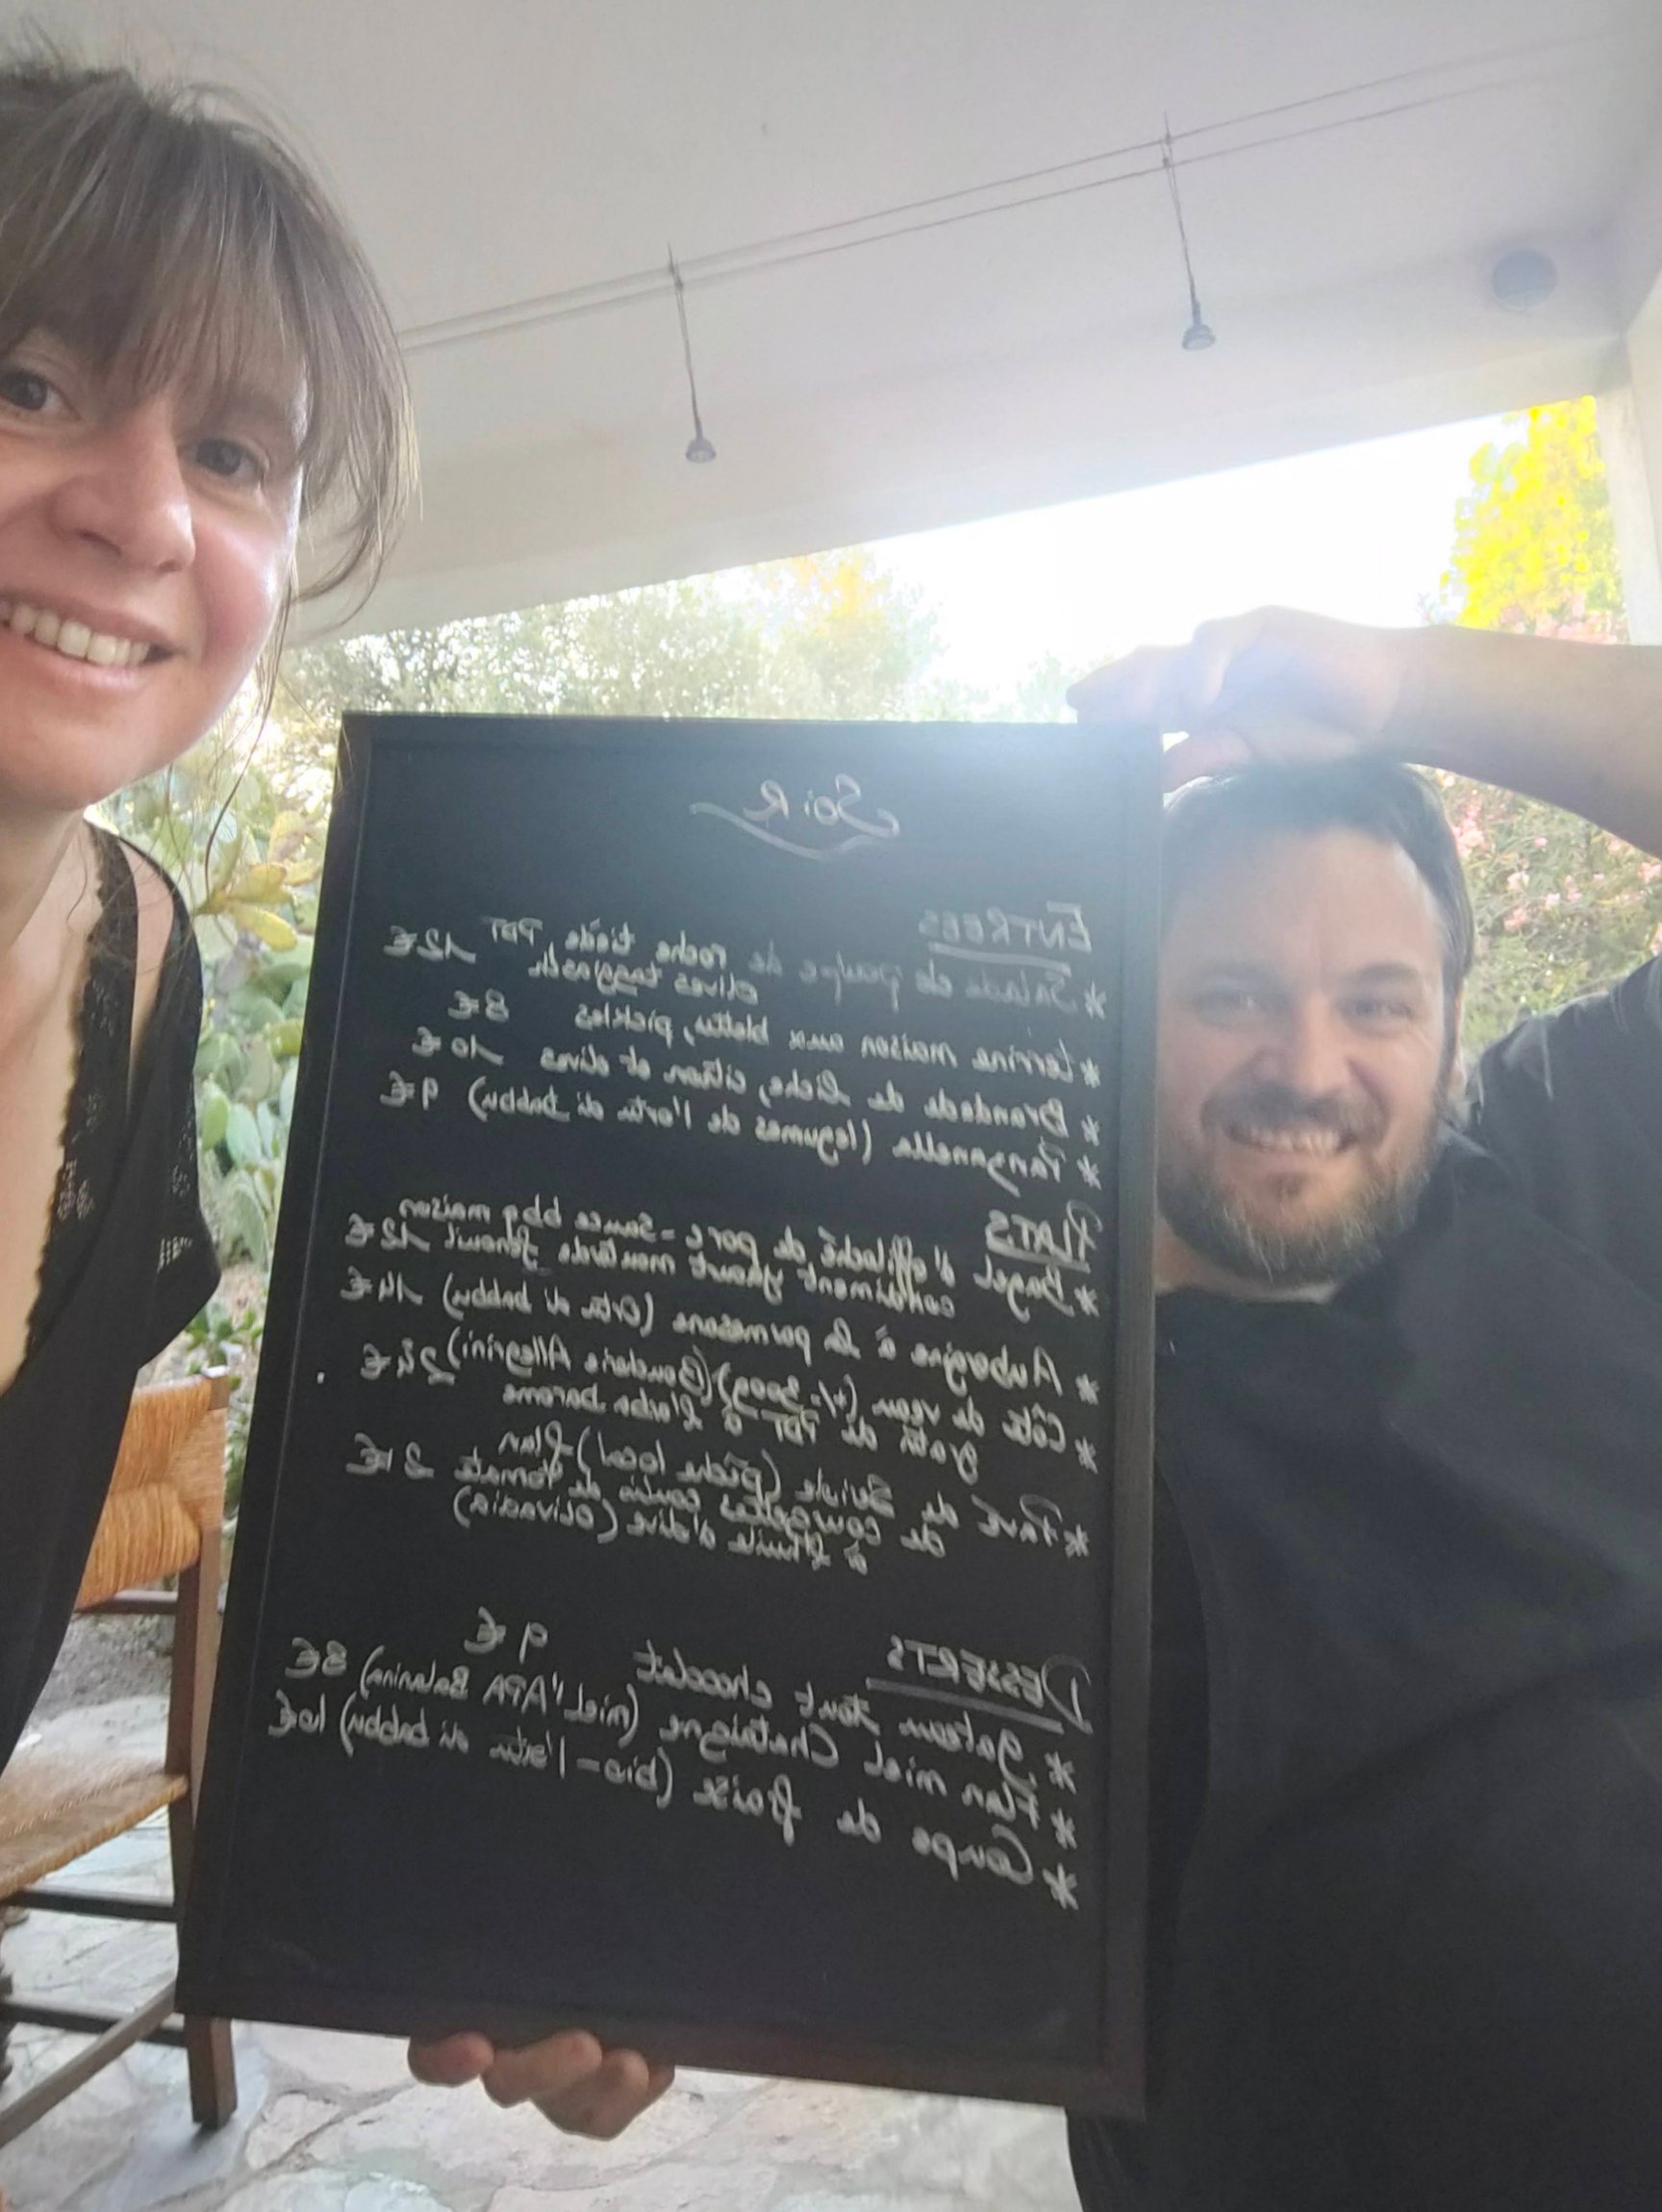 SoiR
ENTREES
* Salade de poulpe de roche tiède, PDT
olives taggiasche 12€
* terrine maison aux blettes, pickles 8€
* Brandade de liche, citron et olives 10€
* Panzanella (legumes de l'ortu di babbu) 9€
PLATS
* Bagel d'effiloché de porc - sauce bbq maison
condiment yaourt moutarde fenouil 12€
* Aubergine à la parmesane (Ortu di babbu) 14€
* Côte de veau (+/- 300g) (Boucherie Allegrini) 24€
gratin de PDT à l'arba barona
* Pavé de Seriole (pêche local) flan
de courgettes coulis de tomate 21€
à l'huile d'olive (olivadia)
DESSERTS
* gateau tout chocolat 9€
* Flan miel Chataigne (miel "APA Balanina) 8€
* Coupe de fraise (bio - l'ortu di babbu) 10€